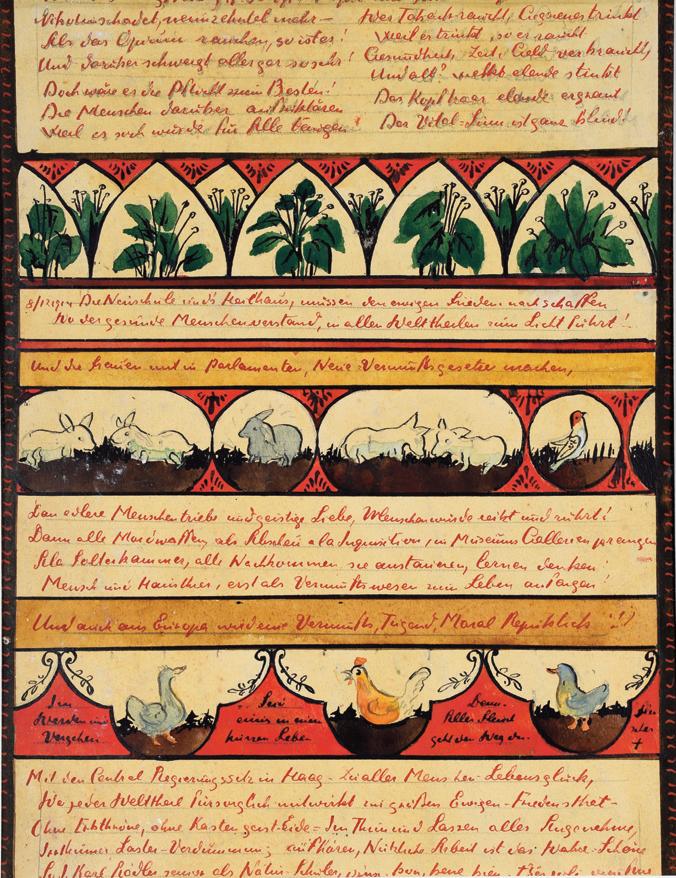 mehr –
Als das Opium rauchen, so ist es!
Und darüber schweigt alles gar so sehr!
Doch wäre es die Pflicht zum Besten!
Die Menschen darüber aufklären
Weil es sich würde für Alle
Wer Taback raucht, trinkt
Weil er trinkt, so er raucht
Gesundheit, Zeit, Geld verbraucht,
Und alt? elende stinkt
Das Kopfhaar elende ergraut
Der Vital-Sinn ist ganz blind!
Die Neuschule und's Heilhaus, müssen den ewigen Frieden nach schaffen
Wo der gesunde Menschenverstand, in allen Welttheilen zum Licht führt!
Und die Frauen mit in Parlamenten, Neue Vernunftsgesetze machen,
Den edlere Menschentriebe und geistige Liebe, Menschenwürde reibt und rührt!
Dann alle Mordwaffen, als Abscheu a la Inquisition, in Museums Gallerien prangen
Als Folterkammer, alle Nachkommen sie anstaunen, lernen denken!
Mensch und Hausthier, erst als Vernunftswesen zum Leben anfangen!
Und auch aus Europa wird eine Vernunfts, Tugend, Moral Republick !!)
Im
Werden und
Vergehen
Sein
eines in einen
kurzen Leben
Dann
Alles Fleisch
geht den Weg den
Mit den Central Regierungssitz in Haag - zu aller Menschen-Lebensglück,
Wo jeder Welttheil fürsorglich mitwirkt im großen Ewigen-Friedens
Ohne Erbthröne, ohne Kasten Eide = Im Thun und Lassen alles Angenehme,
Irrthümer, Laster-Verdummung aufhören, Nützliche Arbeit ist das Wahre-Schöne
als Natur-Schüler,